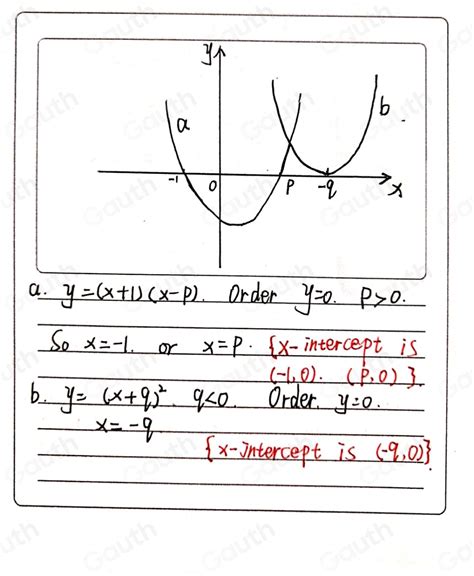 y
a
b.
-1
0
P
-q
x
a. y=(x+1)(x-P). Order y=0. P>0.
So x=-1. or x=P. {x-intercept is
(-1,0). (P,0)}.
b. y= (x+q)². q<0. Order. y=0.
x=-q
{x-intercept is (-q,0)}
Gauth